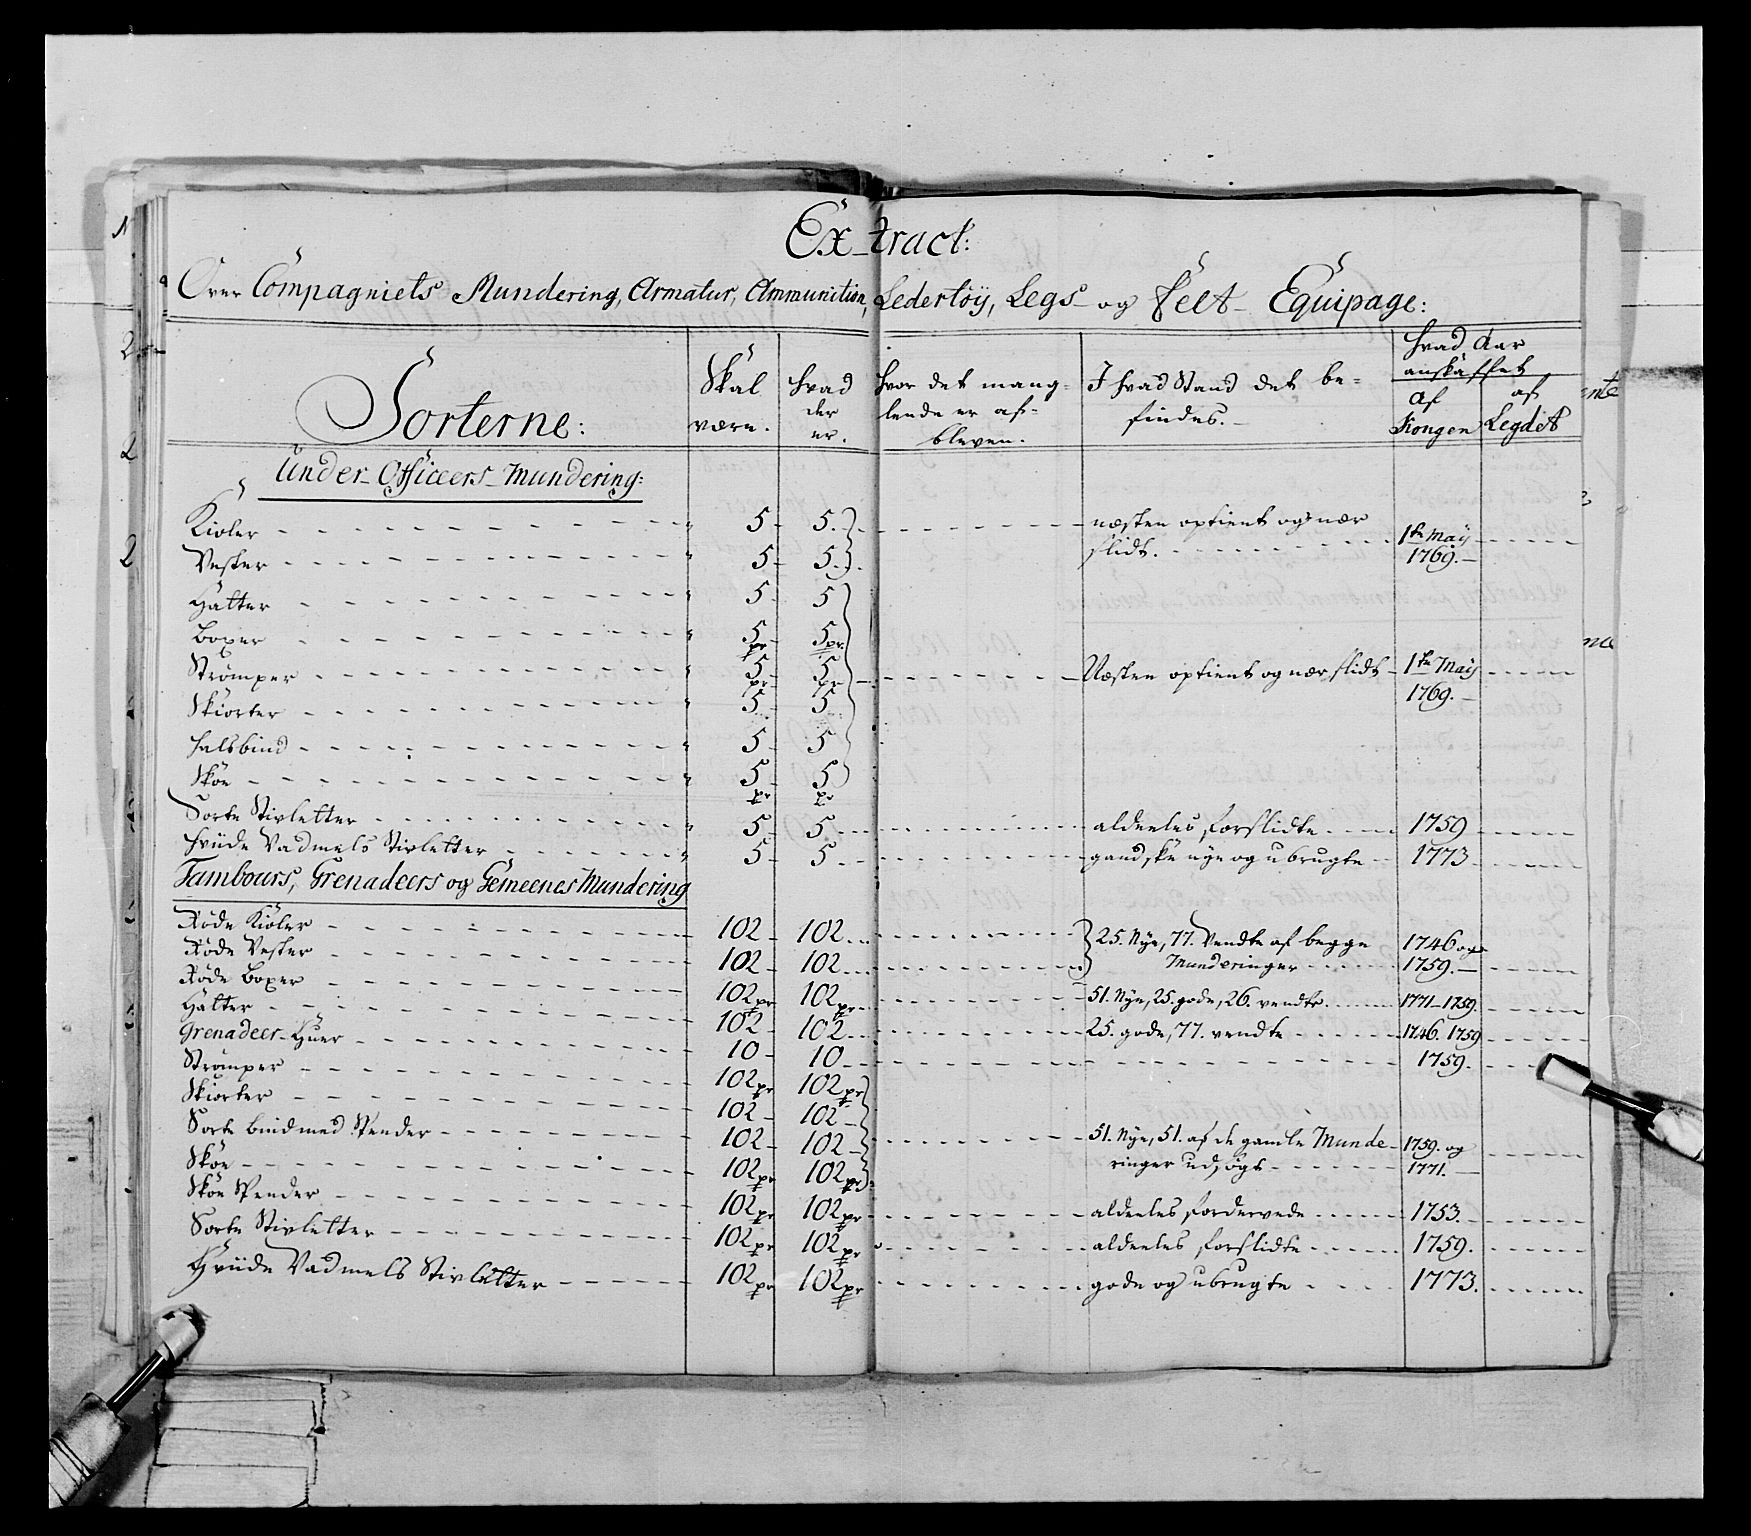 Extract:
Over Compagniets Mundering, Armatur, Ammunition, Ledertöÿ, Legs- og Felt- Equipage:
Sorterne: Skal være. hvad der er. hvor det manglende er afbleven. I hvad Stand det befindes. hvad Aar anskaffet af Kongen af Legdet
Under-Officeers-Mundering:
Kioler 5 5 næsten optient og nær
Vester 5 5 slidt. 1te Maÿ 1769.
Hatter 5 5
Boxer 5 pr 5 pr
Strømper 5 pr 5 pr Næsten optient og nær slidt 1te Maÿ
Skiorter 5 5 1769.
halsbind 5 5
Skoe 5 pr 5 pr
Sorte Stivletter 5 5 aldeeles forslidte 1759
Hviide Vadmels Stivletter 5 5 gandske nye og ubrugte 1773
Tambours, Grenadeers og Gemeenes Mundering
Røde Kioler 102 102 25. Nye, 77. Vendte af begge 1746 og
Røde Vester 102 102 Munderinger 1759.
Røde Boxer 102 pr 102 pr 51. Nye, 25. gode, 26. vendte. 1771-1759.
Hatter 102 102 25. gode, 77. vendte 1746. 1759
Grenadeer-Huer 10 10 1759.
Strømper 102 pr 102 pr
Skiorter 102 102
Sorte bind med Spender 102 102 51. Nye, 51. af de gamle Munde- 1759. og
Skoe 102 pr 102 pr ringer udsøgt 1771.
Skoe Spender 102 pr 102 pr aldeeles fordervede 1753.
Sorte Stivletter 102 pr 102 pr aldeeles forslidte 1759.
Hviide Vadmels Stivletter 102 pr 102 pr gode og ubrugte 1773.